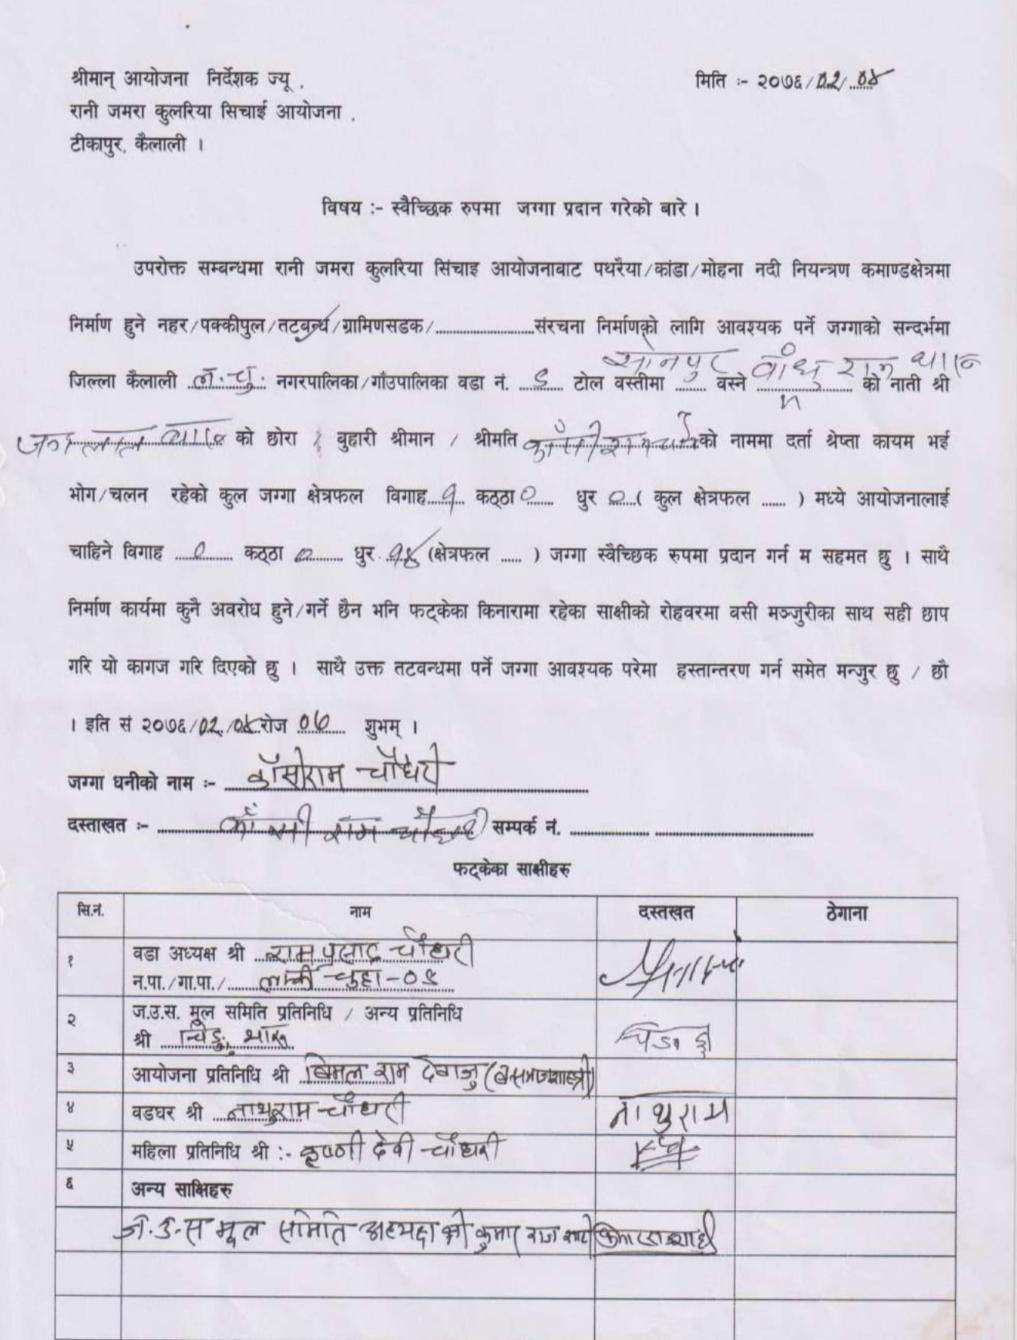 श्रीमान् आयोजना निर्देशक ज्यू ,
मिति :- २०७६/02/04
रानी जमरा कुलरिया सिचाई आयोजना ,
टीकापुर, कैलाली ।
विषय :- स्वैच्छिक रुपमा जग्गा प्रदान गरेको बारे ।
उपरोक्त सम्बन्धमा रानी जमरा कुलरिया सिंचाइ आयोजनाबाट पथरैया/कांडा/मोहना नदी नियन्त्रण कमाण्डक्षेत्रमा
निर्माण हुने नहर/पक्कीपुल/तटबन्ध/ग्रामिणसडक/....................संरचना निर्माणको लागि आवश्यक पर्ने जग्गाको सन्दर्भमा
जिल्ला कैलाली ल.चु. नगरपालिका/गाँउपालिका वडा नं. ९ टोल वस्तीमा सोनपुर वस्ने को नाती श्री
को छोरा / बुहारी श्रीमान / श्रीमति को नाममा दर्ता श्रेष्ता कायम भई
भोग/चलन रहेको कुल जग्गा क्षेत्रफल विगाह १ कठ्ठा ० धुर ० ( कुल क्षेत्रफल ...... ) मध्ये आयोजनालाई
चाहिने विगाह ० कठ्ठा ० धुर (क्षेत्रफल ..... ) जग्गा स्वैच्छिक रुपमा प्रदान गर्न म सहमत छु । साथै
निर्माण कार्यमा कुनै अवरोध हुने/गर्ने छैन भनि फट्केका किनारामा रहेका साक्षीको रोहवरमा वसी मञ्जुरीका साथ सही छाप
गरि यो कागज गरि दिएको छु । साथै उक्त तटवन्धमा पर्ने जग्गा आवश्यक परेमा हस्तान्तरण गर्न समेत मन्जुर छु / छौ
। इति सं २०७६/02/04 रोज शुभम् ।
जग्गा धनीको नाम :- काँसीराम चौधरी
दस्ताखत :- काँसी राम चौधरी सम्पर्क नं. ................ ................................
फट्केका साक्षीहरु
सि.नं. नाम दस्तखत ठेगाना
१ वडा अध्यक्ष श्री राम प्रसाद चौधरी
न.पा./गा.पा./ लम्की चुहा-०९
२ ज.उ.स. मूल समिति प्रतिनिधि / अन्य प्रतिनिधि
श्री
३ आयोजना प्रतिनिधि श्री बिमल राम देवाजु
४ वडघर श्री नाथुराम चौधरी नाथुराम
५ महिला प्रतिनिधि श्री :- कृष्णी देवी चौधरी
६ अन्य साक्षिहरु
ज.उ.स मूल समिति अध्यक्ष श्री कुमार राज शाही